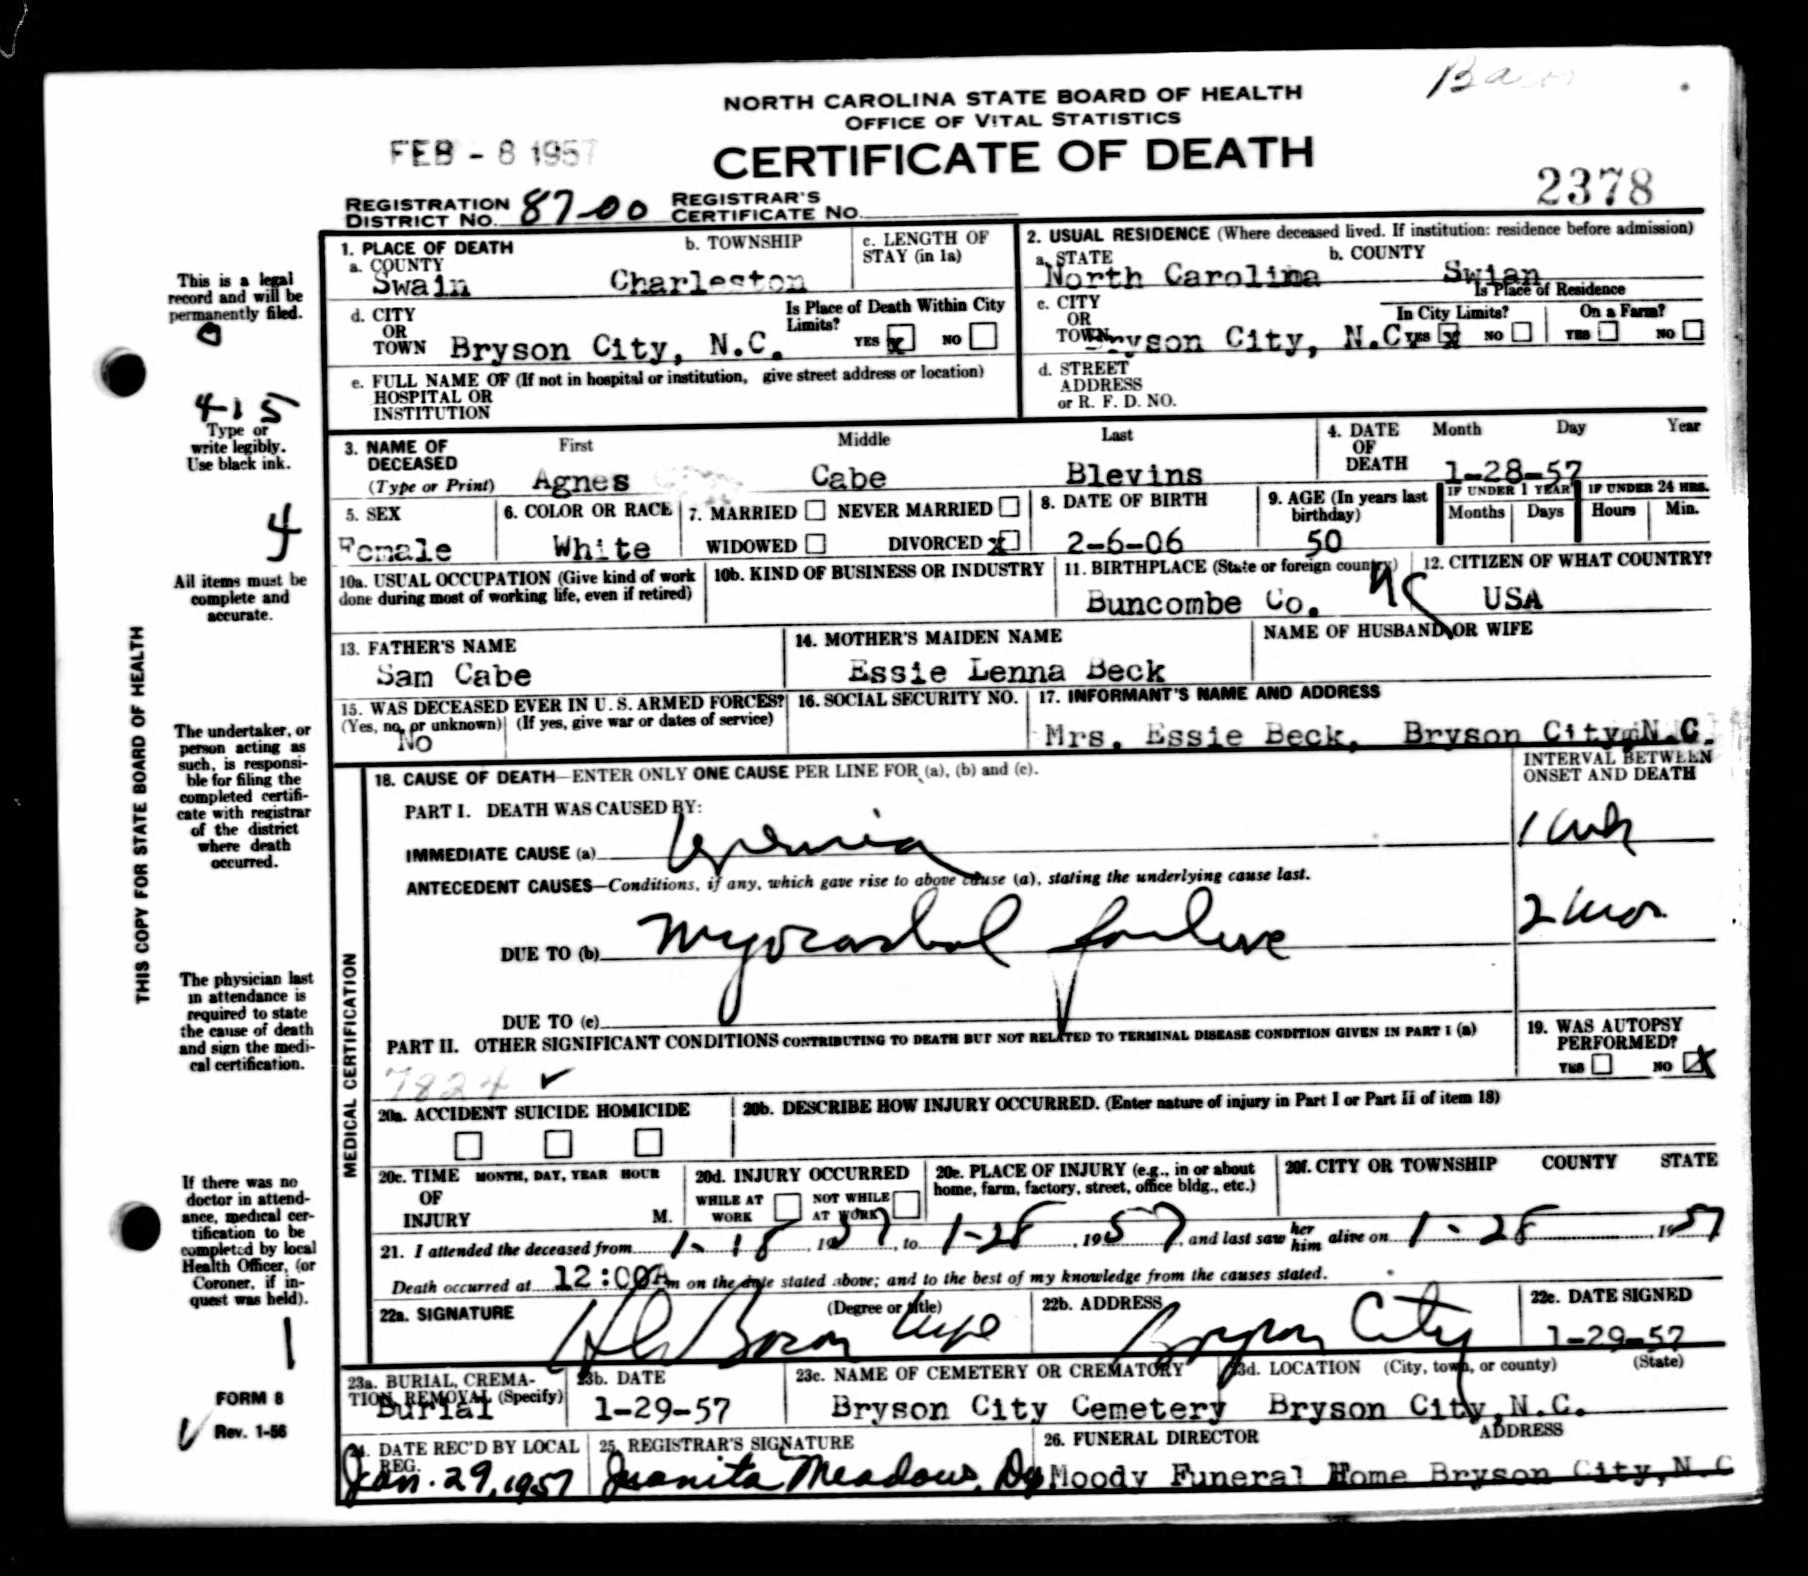 NORTH CAROLINA STATE BOARD OF HEALTH
OFFICE OF VITAL STATISTICS
FEB - 8 1957
CERTIFICATE OF DEATH
2378
REGISTRATION DISTRICT NO. 87-00 REGISTRAR'S CERTIFICATE NO.
1. PLACE OF DEATH
a. COUNTY Swain
b. TOWNSHIP Charleston
c. LENGTH OF STAY (in 1a)
2. USUAL RESIDENCE (Where deceased lived. If institution: residence before admission)
a. STATE North Carolina
b. COUNTY Swian
d. CITY OR TOWN Bryson City, N.C.
Is Place of Death Within City Limits? YES x NO
c. CITY OR TOWN Bryson City, N.C.
Is Place of Residence
In City Limits? YES x NO
On a Farm? YES NO
e. FULL NAME OF (If not in hospital or institution, give street address or location)
HOSPITAL OR INSTITUTION
d. STREET ADDRESS or R. F. D. NO.
3. NAME OF DECEASED (Type or Print)
First Agnes
Middle Cabe
Last Blevins
4. DATE OF DEATH Month Day Year
1-28-57
5. SEX
Female
6. COLOR OR RACE
White
7. MARRIED NEVER MARRIED
WIDOWED DIVORCED x
8. DATE OF BIRTH
2-6-06
9. AGE (In years last birthday)
50
IF UNDER 1 YEAR Months Days
IF UNDER 24 HRS. Hours Min.
10a. USUAL OCCUPATION (Give kind of work done during most of working life, even if retired)
10b. KIND OF BUSINESS OR INDUSTRY
11. BIRTHPLACE (State or foreign country)
Buncombe Co. NC
12. CITIZEN OF WHAT COUNTRY?
USA
13. FATHER'S NAME
Sam Cabe
14. MOTHER'S MAIDEN NAME
Essie Lenna Beck
NAME OF HUSBAND OR WIFE
15. WAS DECEASED EVER IN U. S. ARMED FORCES?
(Yes, no, or unknown) (If yes, give war or dates of service)
No
16. SOCIAL SECURITY NO.
17. INFORMANT'S NAME AND ADDRESS
Mrs. Essie Beck, Bryson City, N.C.
MEDICAL CERTIFICATION
18. CAUSE OF DEATH—ENTER ONLY ONE CAUSE PER LINE FOR (a), (b) and (c).
INTERVAL BETWEEN ONSET AND DEATH
PART I. DEATH WAS CAUSED BY:
IMMEDIATE CAUSE (a) Uremia 1 wk
ANTECEDENT CAUSES—Conditions, if any, which gave rise to above cause (a), stating the underlying cause last.
DUE TO (b) Myocardial failure 2 mos.
DUE TO (c)
PART II. OTHER SIGNIFICANT CONDITIONS CONTRIBUTING TO DEATH BUT NOT RELATED TO TERMINAL DISEASE CONDITION GIVEN IN PART I (a)
7824 ✓
19. WAS AUTOPSY PERFORMED?
YES NO X
20a. ACCIDENT SUICIDE HOMICIDE
20b. DESCRIBE HOW INJURY OCCURRED. (Enter nature of injury in Part I or Part II of item 18)
20c. TIME OF INJURY MONTH, DAY, YEAR HOUR M.
20d. INJURY OCCURRED
WHILE AT WORK NOT WHILE AT WORK
20e. PLACE OF INJURY (e.g., in or about home, farm, factory, street, office bldg., etc.)
20f. CITY OR TOWNSHIP COUNTY STATE
21. I attended the deceased from 1-18, 1957, to 1-28, 1957, and last saw her him alive on 1-28 1957
Death occurred at 12:00A m on the date stated above; and to the best of my knowledge from the causes stated.
22a. SIGNATURE (Degree or title)
22b. ADDRESS
Bryson City
22c. DATE SIGNED
1-29-57
23a. BURIAL, CREMATION, REMOVAL (Specify)
Burial
23b. DATE
1-29-57
23c. NAME OF CEMETERY OR CREMATORY
Bryson City Cemetery
23d. LOCATION (City, town, or county) (State)
Bryson City, N.C.
24. DATE REC'D BY LOCAL REG.
Jan. 29, 1957
25. REGISTRAR'S SIGNATURE
Juanita Meadows, Dy
26. FUNERAL DIRECTOR ADDRESS
Moody Funeral Home Bryson City, N.C
THIS COPY FOR STATE BOARD OF HEALTH
This is a legal
record and will be
permanently filed.
0
415
Type or
write legibly.
Use black ink.
4
All items must be
complete and
accurate.
The undertaker, or
person acting as
such, is responsi-
ble for filing the
completed certifi-
cate with registrar
of the district
where death
occurred.
The physician last
in attendance is
required to state
the cause of death
and sign the medi-
cal certification.
If there was no
doctor in attend-
ance, medical cer-
tification to be
completed by local
Health Officer, (or
Coroner, if in-
quest was held).
1
FORM 8
Rev. 1-56